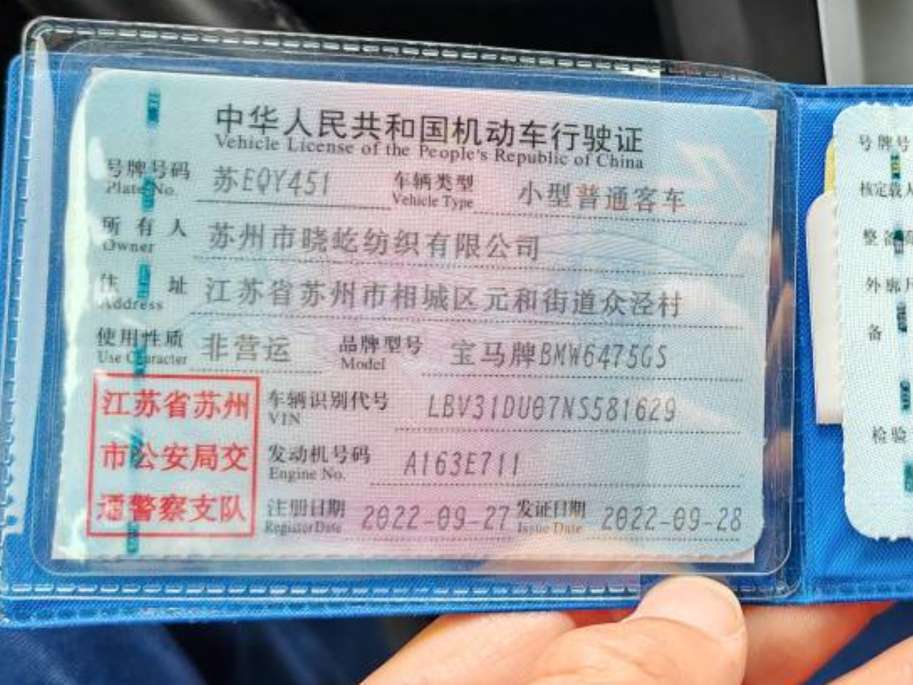 中华人民共和国机动车行驶证
Vehicle License of the People's Republic of China
号牌号码 苏EQY451 车辆类型 小型普通客车
Plate No. Vehicle Type
所有人 苏州市晓屹纺织有限公司
Owner
住址 江苏省苏州市相城区元和街道众泾村
Address
使用性质 非营运 品牌型号 宝马牌BMW6475GS
Use Character Model
江苏省苏州
市公安局交
通警察支队
车辆识别代号 LBV31DU07NS581629
VIN
发动机号码 A163E711
Engine No.
注册日期 2022-09-27 发证日期 2022-09-28
Register Date Issue Date
号牌号
核定载人
整备
外廓尺
备
检验